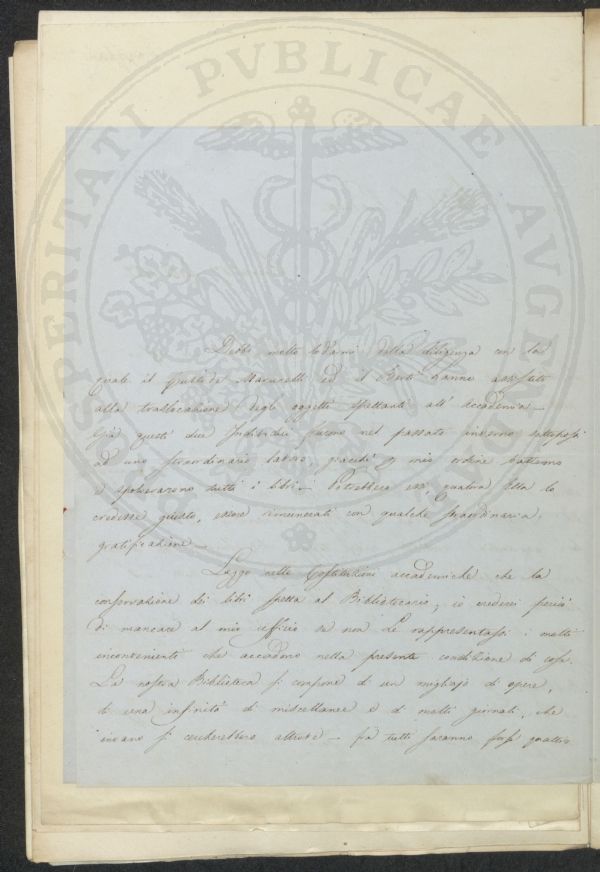 PROSPERITATI PVBLICAE AVGENDAE
Debbo molto lodarmi della diligenza con la
quale il Marucelli ed il Berti hanno assistito
alla traslocazione degli oggetti spettanti all' Accademia –
Già questi due Individui furono nel passato inverno sottoposti
ad uno straordinario lavoro, giacchè mio ordine batterono
e spolverarono tutti i libri – Potrebbero essi, qualora Ella lo
credesse giusto, essere rimunerati con qualche straordinaria
gratificazione –
Leggo nelle Costituzioni accademiche che la
conservazione dei libri spetta al Bibliotecario, io crederei perciò
di mancare al mio ufficio se non Le rappresentassi i molti
inconvenienti che accadono nella presente condizione di cose.
La nostra Biblioteca si compone di un migliajo di opere,
di una infinità di miscellanee e di molti giornali, che
invano si cercherebbero altrove – fra tutti saranno forse quattro